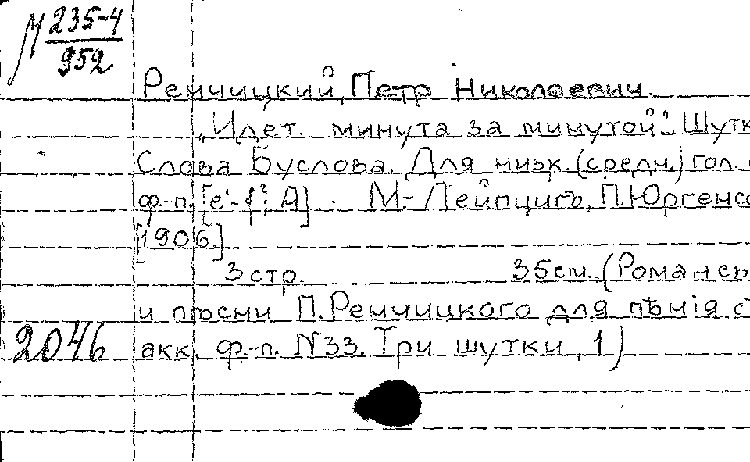 М 235-4
952
Ремчицкий, Петр Николаевич
„Идет минута за минутой“. Шутк
Слова Буслова. Для низк. (средн.) гол.
ф-п. [e'-f²; A] М.-Лейпцигъ, П. Юргенсо
[1906.]
3 стр. 35 см. (Романсы
и пѣсни П. Ремчицкого для пѣнія с
2046 акк. ф-п. N33. Три шутки, 1)